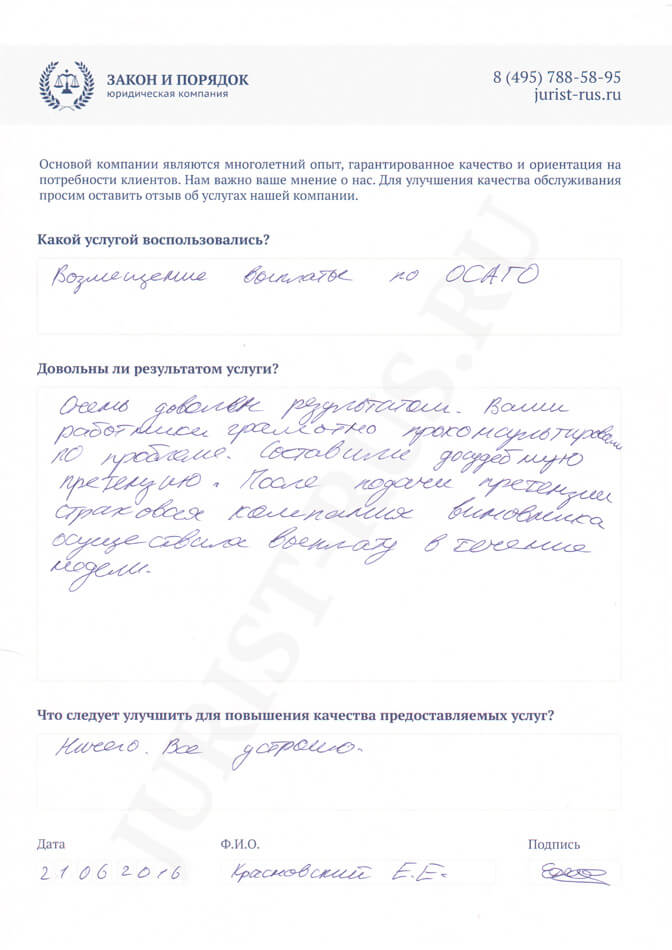 ЗАКОН И ПОРЯДОК
юридическая компания
8 (495) 788-58-95
jurist-rus.ru
Основой компании являются многолетний опыт, гарантированное качество и ориентация на
потребности клиентов. Нам важно ваше мнение о нас. Для улучшения качества обслуживания
просим оставить отзыв об услугах нашей компании.
Какой услугой воспользовались?
Возмещение выплаты по ОСАГО
Довольны ли результатом услуги?
Очень доволен результатом. Ваши
работники грамотно проконсультировали
по проблеме. Составили досудебную
претензию. После подачи претензии
страховая компания виновника
осуществила выплату в течение
недели.
Что следует улучшить для повышения качества предоставляемых услуг?
Ничего. Все устроило.
Дата
Ф.И.О.
Подпись
21 06 2016
Красновский Е.Е.
JURIST-RUS.RU